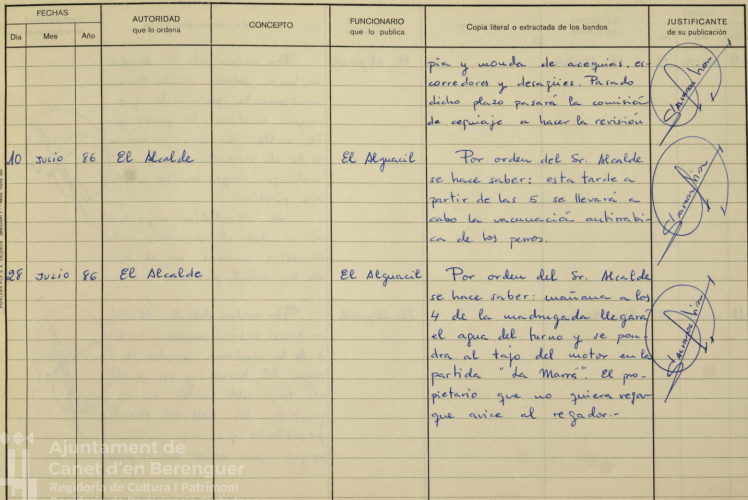 FECHAS
Día
Mes
Año
AUTORIDAD
que lo ordena
CONCEPTO
FUNCIONARIO
que lo publica
Copia literal o extractada de los bandos
JUSTIFICANTE
de su publicación
pia y monda de acequias, es-
corredores y desagües. Pasado
dicho plazo pasará la comisión
de cequiaje a hacer la revisión
10 JULIO 86 El Alcalde El Alguacil Por orden del Sr. Alcalde
se hace saber: esta tarde a
partir de las 5 se llevará a
cabo la vacunación antirrabi-
ca de los perros.
28 JULIO 86 El Alcalde El Alguacil Por orden del Sr. Alcalde
se hace saber: mañana a las
4 de la madrugada llegará
el agua del turno y se pon-
dra al tajo del motor en la
partida "La Marrá". El pro-
pietario que no quiera regar
que avise al regador.-
Ajuntament de
Canet d'en Berenguer
Regidoria de Cultura i Patrimoni